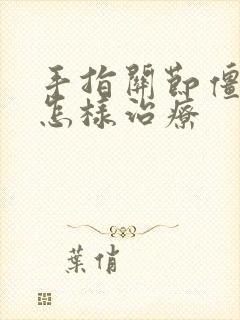 手指關節僵
怎樣治療
葉俏